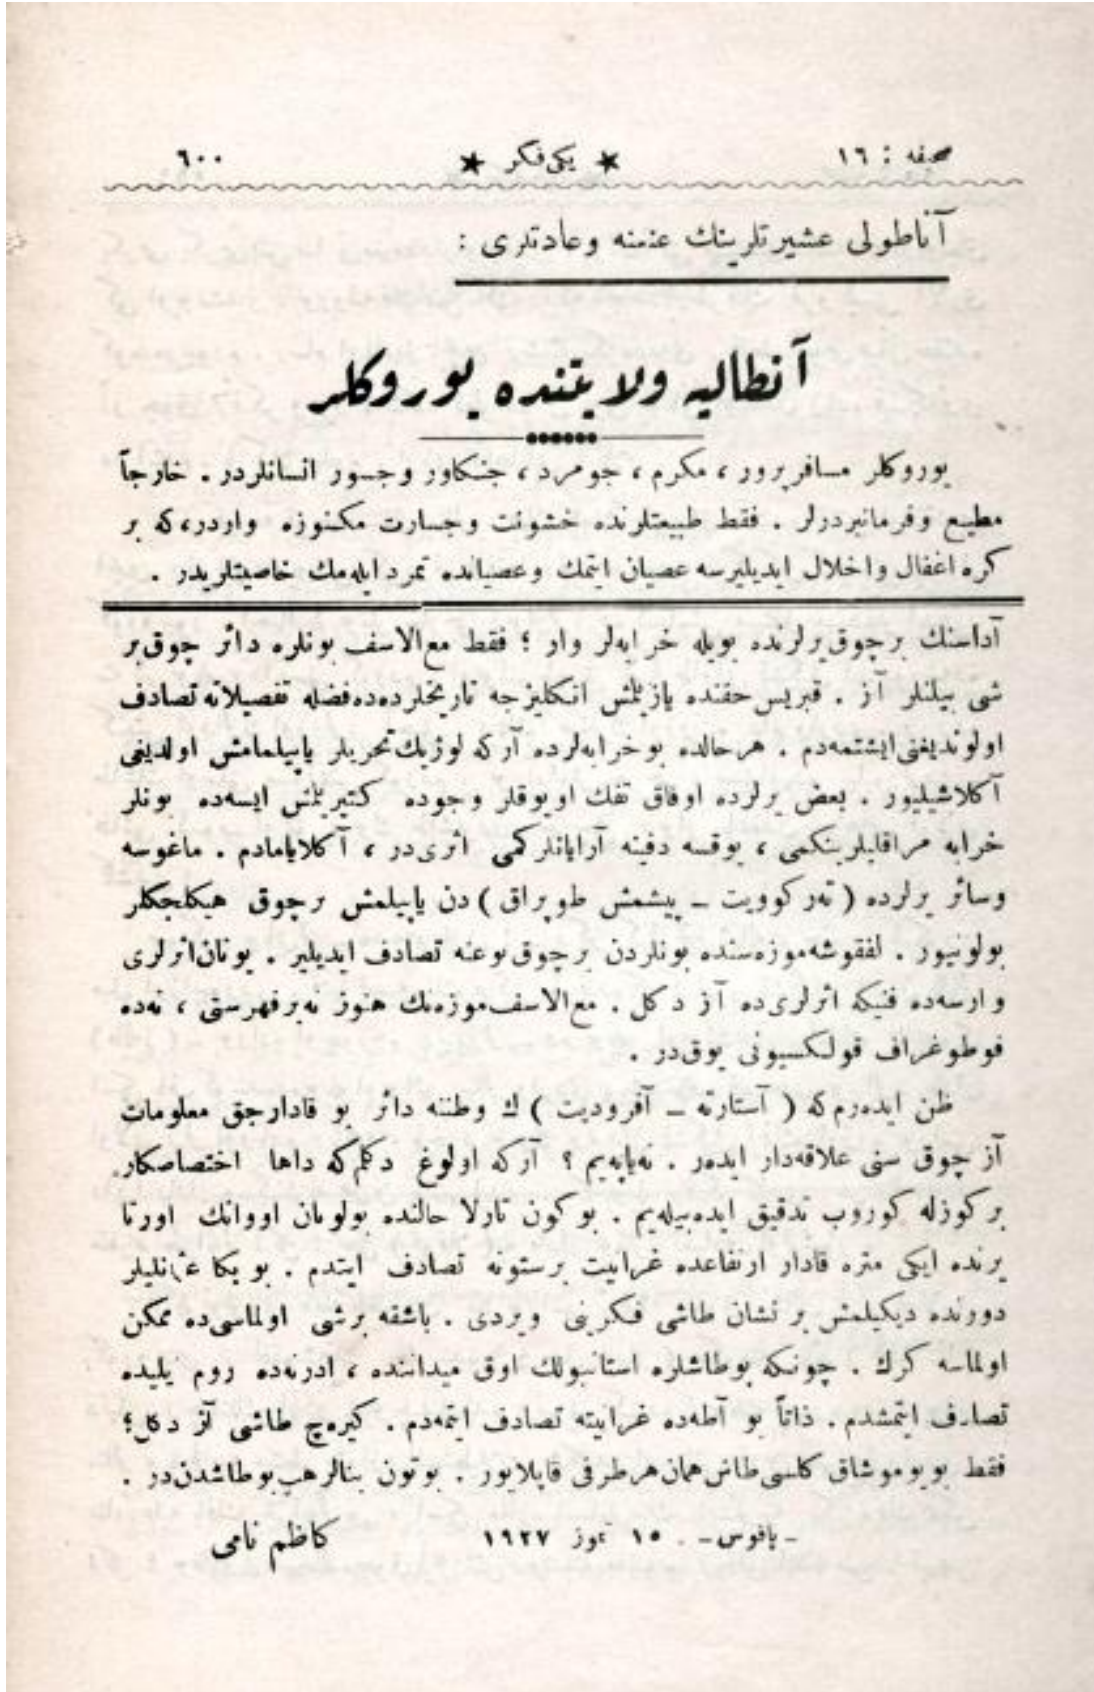 صحیفه : ١٦ ★ یکی فکر ★ ٦٠٠
آناطولی عشیرتلرینك عنعنه وعادتلری :
آنطالیه ولایتنده یوروكلر
یوروكلر مسافرپرور ، مكرم ، جومرد ، جنكاور وجسور انسانلردر . خارجاً
مطیع وفرمانبردرلر . فقط طبیعتلرنده خشونت وجسارت مكنوزه واردر،كه بر
كره اغفال واخلال ایدیلیرسه عصیان ایتمك وعصیانده تمرد ایله‌مك خاصیتلریدر .
آداسنك برچوق یرلرنده بویله خرابه‌لر وار ؛ فقط مع‌الاسف بونلره دائر چوق بر
شی بیلنلر آز . قبریس حقنده یازیلمش انكلیزجه تاریخلرده‌ده فضله تفصیلاته تصادف
اولوندیغنی ایشتمه‌دم . هرحالده بوخرابه‌لرده آركه لوژیك تحریلر یاپیلمامش اولدیغی
آكلاشیلیور . بعض یرلرده اوفاق تفك اویوقلر وجوده كتیریلمش ایسه‌ده بونلر
خرابه مراقلیلرینكمی ، یوقسه دفینه آرایانلركمی اثری‌در ، آكلایامادم . ماغوسه
وسائر یرلرده ( ته‌ركوویت ـ پیشمش طوپراق ) دن یاپیلمش برچوق هیكلجكلر
بولونیور . لفقوشه موزه‌سنده بونلردن برچوق نوعنه تصادف ایدیلیر . یونان اثرلری
وارسه‌ده فنیكه اثرلری‌ده آز دكل . مع‌الاسف موزه‌نك هنوز نه‌بر فهرستی ، نه‌ده
فوطوغراف قولكسیونی یوق‌در .
ظن ایده‌رم كه ( آستارته ـ آفرودیت ) ك وطننه دائر بو قادارجق معلومات
آز چوق سنی علاقه‌دار ایده‌ر . نه‌یاپه‌یم ؟ آركه اولوغ دكلم كه داها اختصاصكار
بر كوزله كوروب تدقیق ایده‌بیله‌یم . بو كون تارلا حالنده بولونان اووانك اورتا
یرنده ایكی متره قادار ارتفاعده غرانیت برستونه تصادف ایتدم . بو بكا عثمانلیلر
دورنده دیكیلمش بر نشان طاشی فكرینی ویردی . باشقه برشی اولماسی‌ده ممكن
اولماسه كرك . چونكه بوطاشلره استانبولك اوق میداننده ، ادرنه‌ده روم یلیده
تصادف ایتمشدم . ذاتاً بو آطه‌ده غرانیته تصادف ایتمه‌دم . كیره‌چ طاشی آز دكل؛
فقط بویوموشاق كلسی طاش همان هرطرفی قاپلایور . بوتون بنالر هپ بوطاشدن‌در .
ـ بافوس ـ . ١٥ تموز ١٩٢٧ كاظم نامی